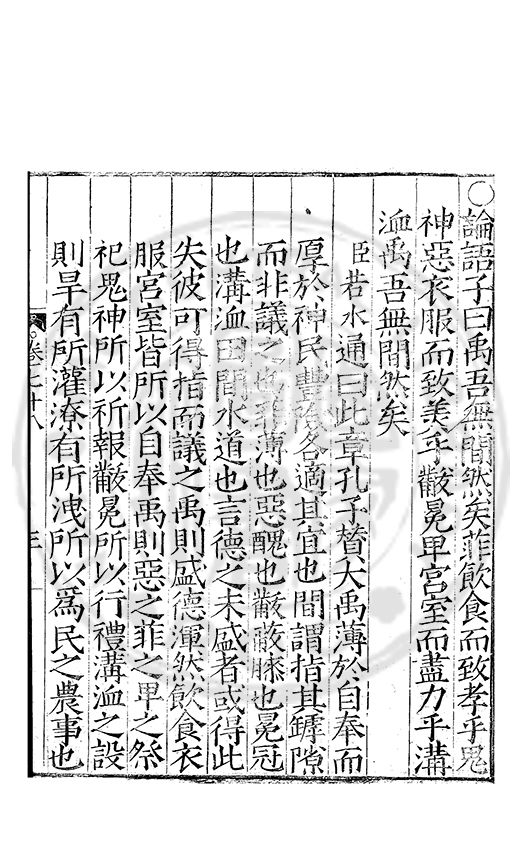 ○論語子曰禹吾無間然矣菲飲食而致孝乎鬼
神惡衣服而致美乎黻冕卑宮室而盡力乎溝
洫禹吾無間然矣
臣若水通曰此章孔子贊大禹薄於自奉而
厚於神民豐儉各適其宜也間謂指其罅隙
而非議之也菲薄也惡醜也黻蔽膝也冕冠
也溝洫田間水道也言德之未盛者或得此
失彼可得指而議之禹則盛德渾然飲食衣
服宮室皆所以自奉禹則惡之菲之卑之祭
祀鬼神所以祈報黻冕所以行禮溝洫之設
則旱有所灌潦有所洩所以為民之農事也
卷之十八
三